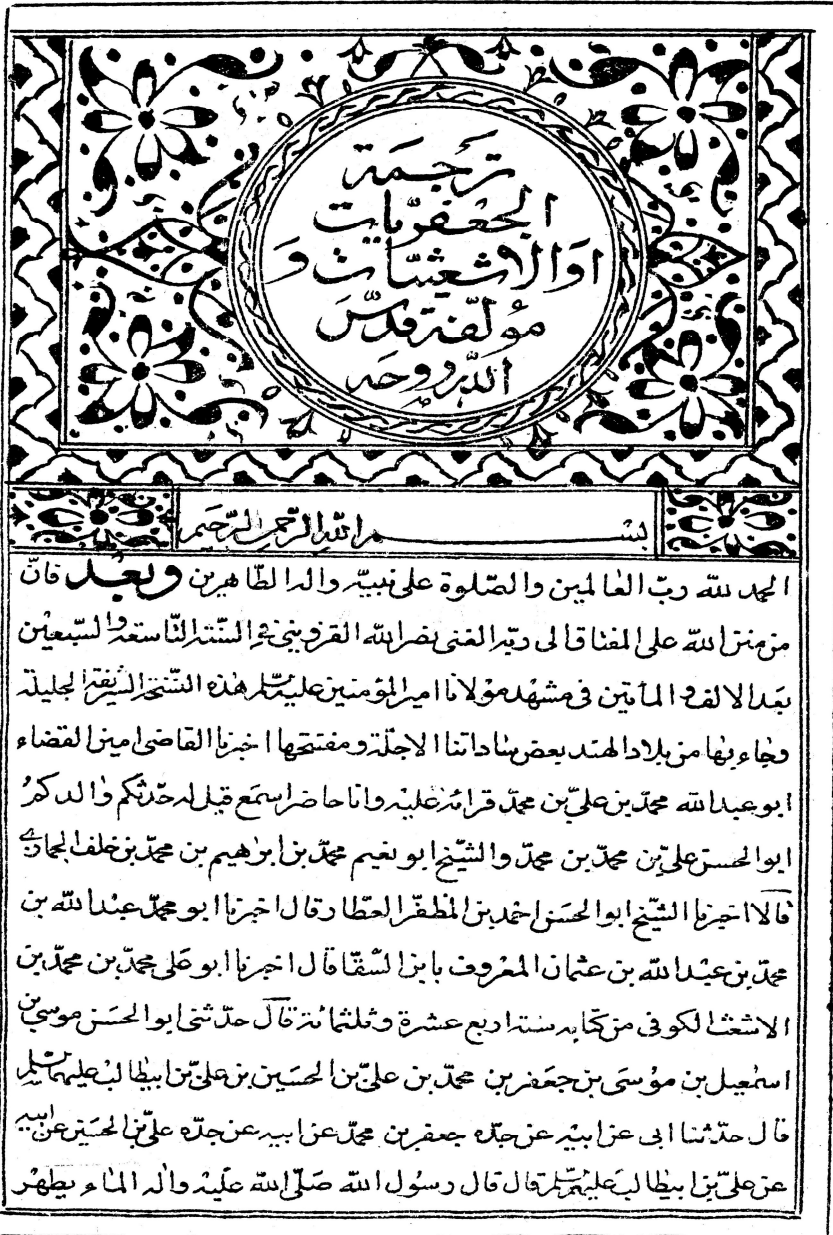 ترجمة
الجعفريات
او الاشعثيات و
مؤلفه قدس
الله روحه
بسم الله الرحمن الرحيم
الحمد لله ربّ العالمين والصّلوة على نبيّه واله الطّاهرين وبعد فانّ
من منن الله على المفتاق الى ربّه الغنى نصر الله القزوينى فى السّنة التّاسعة والسّبعين
بعد الالف والمأتين فى مشهد مولانا امير المؤمنين عليه السلم هذه النّسخة الشّريفة الجليلة
وجاء بها من بلاد الهند بعض ساداتنا الاجلّة ومفتتحها اخبرنا القاضى امين القضاء
ابو عبد الله محمّد بن علىّ بن محمّد قرائة عليه وانا حاضر اسمع قيل له حدّثكم والدكم
ابو الحسن علىّ بن محمّد بن محمّد والشّيخ ابو نعيم محمّد بن ابرهيم بن محمّد بن خلف الجمازى
قالا اخبرنا الشّيخ ابو الحسن احمد بن المظفّر العطّار قال اخبرنا ابو محمّد عبد الله بن
محمّد بن عبد الله بن عثمان المعروف بابن السّقّا قال اخبرنا ابو على محمّد بن محمّد بن
الاشعث الكوفى من كتابه سنة اربع عشرة وثلثمائة قال حدّثنى ابو الحسن موسى بن
اسمعيل بن موسى بن جعفر بن محمّد بن علىّ بن الحسين بن علىّ بن ابيطالب عليهم السلم
قال حدّثنا ابى عن ابيه عن جدّه جعفر بن محمّد عن ابيه عن جدّه علىّ بن الحسين عن ابيه
عن علىّ بن ابيطالب عليهم السلم قال قال رسول الله صلّى الله عليه واله الماء يطهر